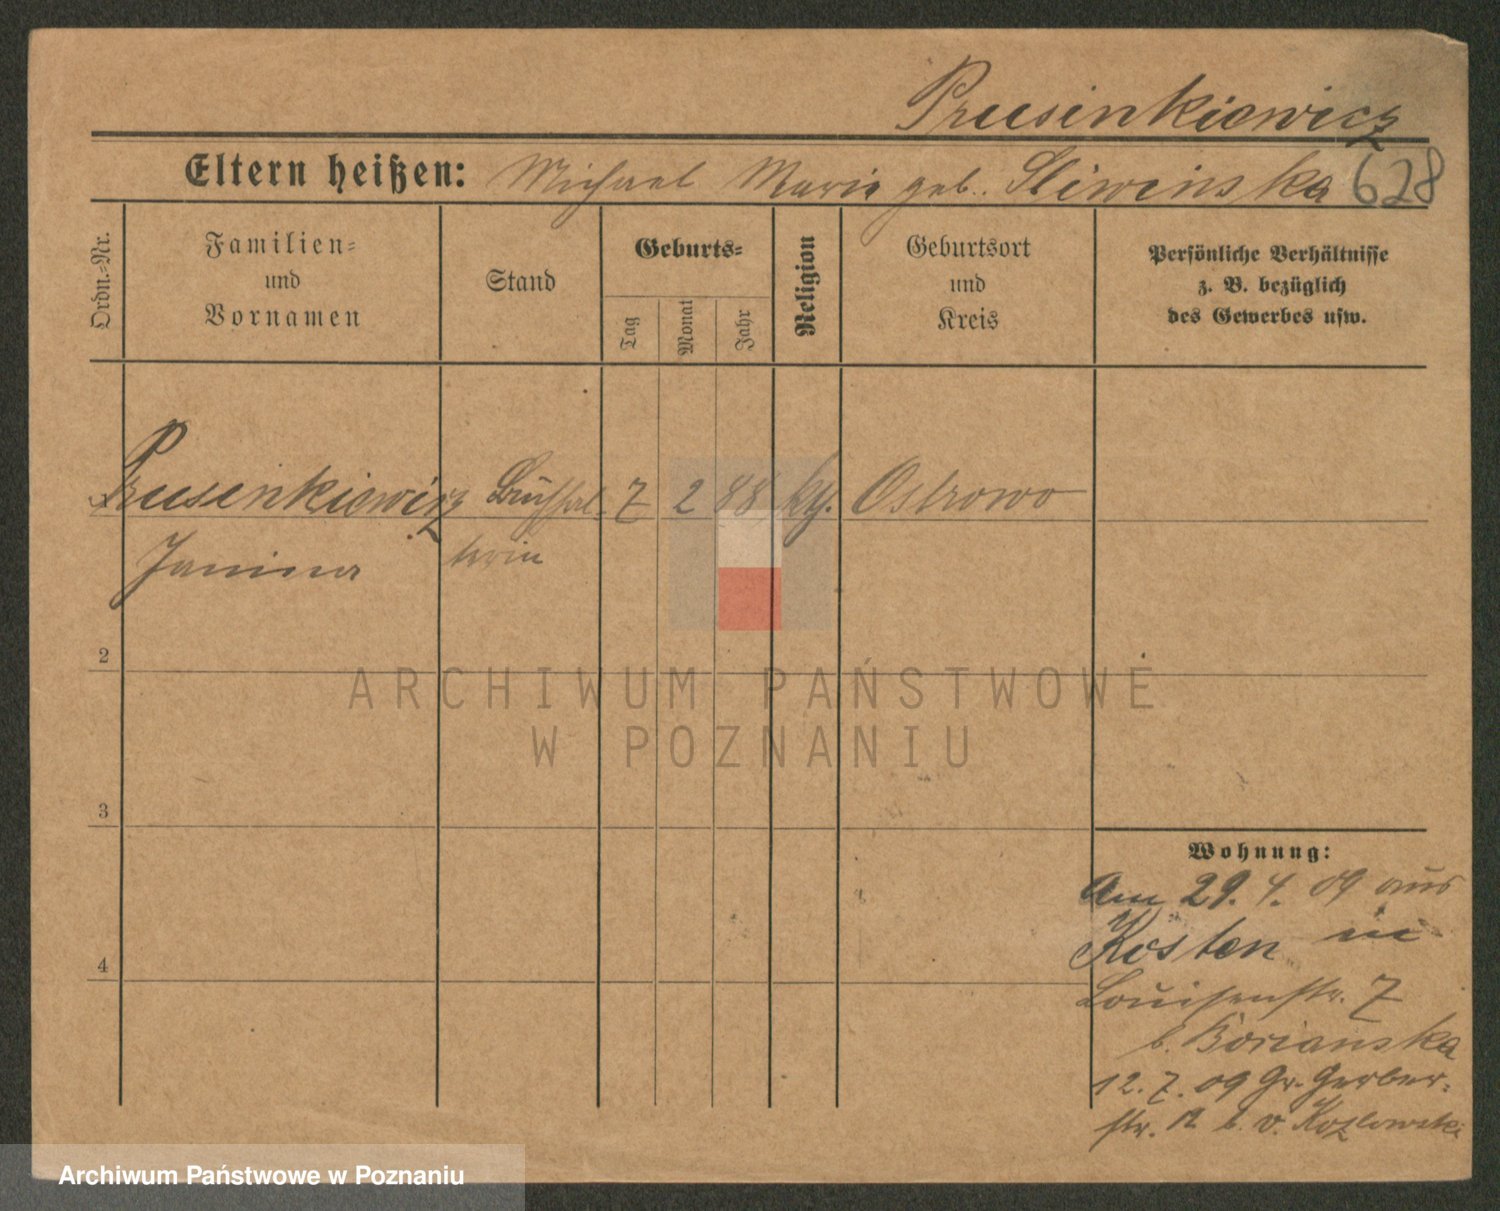 Prusinkiewicz
Eltern heißen: Michael Marie geb. Sliwinska 628
Ordn.-Nr.
Familien-
und
Vornamen
Stand
Geburts-
Tag
Monat
Jahr
Religion
Geburtsort
und
Kreis
Persönliche Verhältnisse
z. B. bezüglich
des Gewerbes usw.
Prusinkiewicz Buchhal- 7 2 88 kth. Ostrowo
Janina terin
2
3
4
ARCHIWUM PAŃSTWOWE
W POZNANIU
Wohnung:
Am 29. 4. 09 aus
Kosten in
Louisenstr. 7
b.
12. 7. 09 Gr. Gerber-
str. b. v. Kozlowski
Archiwum Państwowe w Poznaniu